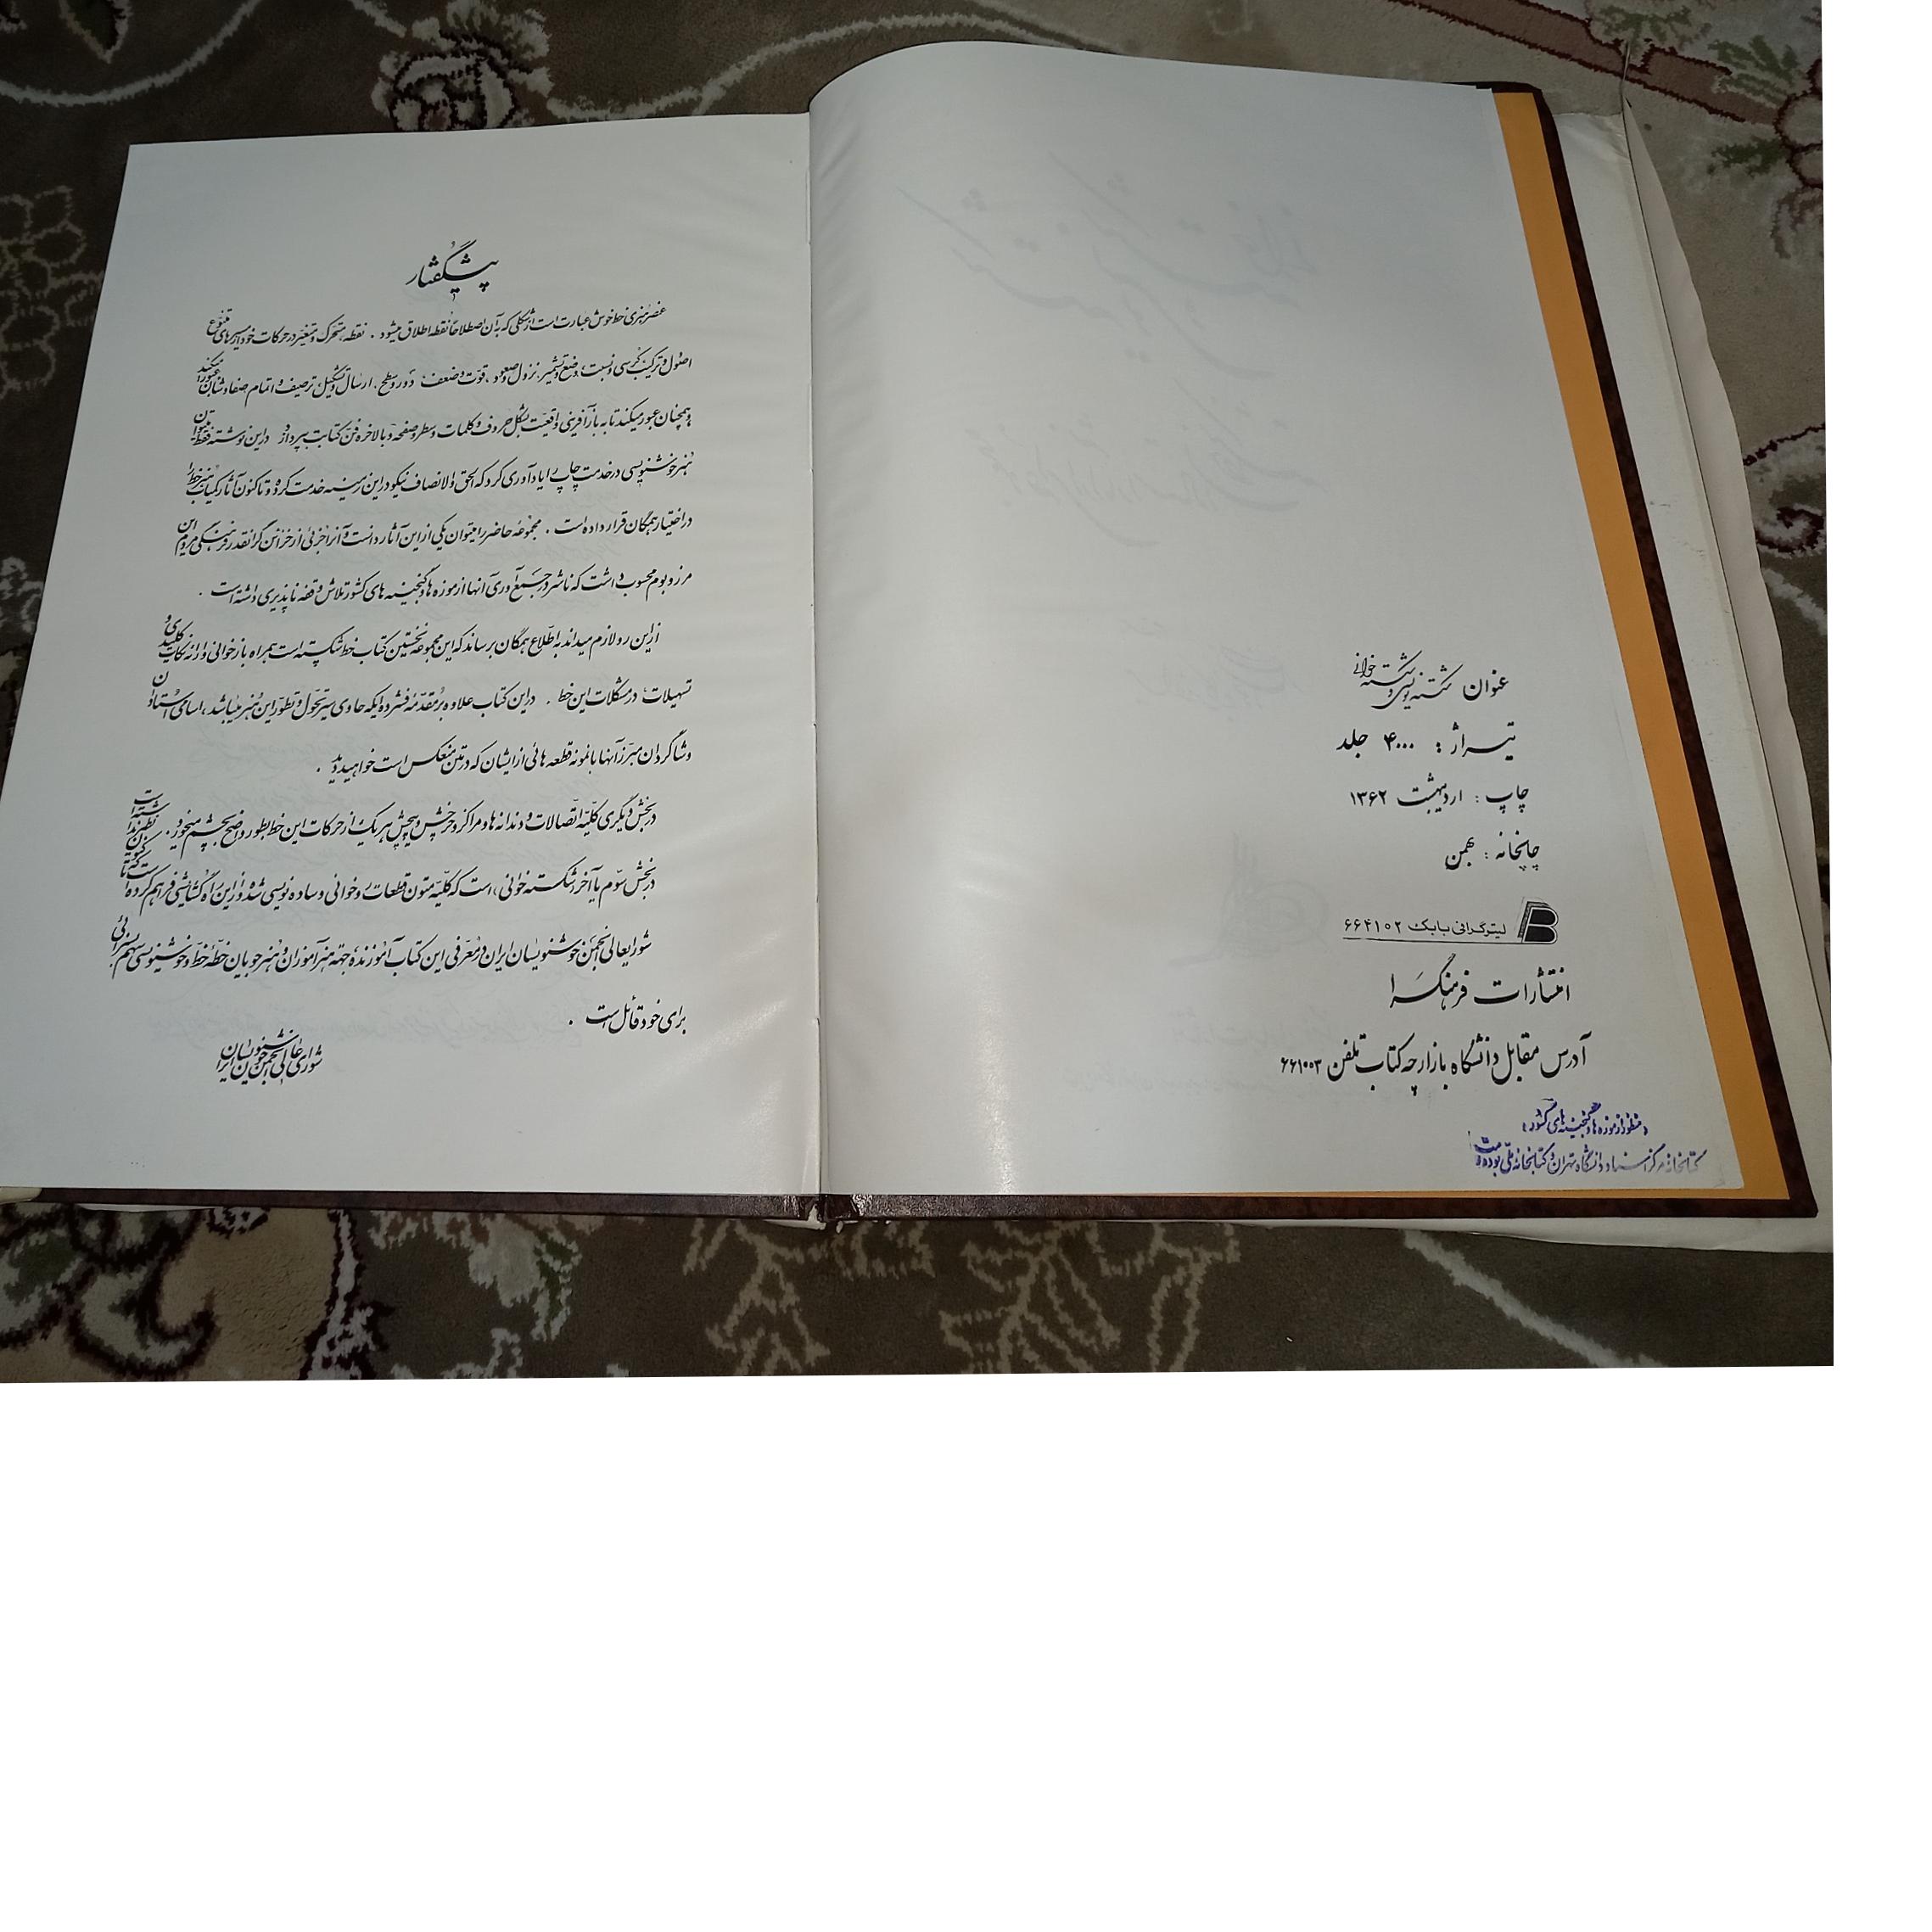 عنوان شکسته نویسی و شکسته خوانی
تیراژ : ۴۰۰۰ جلد
چاپ : اردیبهشت ۱۳۶۲
چاپخانه : بهمن
لیتوگرافی بابک ۶۶۴۱۰۲
انتشارات فرهنگسرا
آدرس مقابل دانشگاه بازارچه کتاب تلفن ۶۶۱۰۰۳
، منظور از موزه ها و گنجینه های کشور ،
کتابخانه مرکز اسناد دانشگاه تهران و کتابخانه ملی بوده است
پیشگفتار
عنصر هنری خط خوش عبارت است از شکلی که به آن اصطلاحاً نقطه اطلاق میشود . نقطه متحرک و متغیر در حرکات خود از مسیرهای متنوع
اصول و ترکیب کرسی و نسبت، وضع و تشمیر، نزول و صعود ، قوت و ضعف ، دور و سطح ، ارسال و تشکیل، ترصیف و اتمام صفا و شان عبور میکند
و همچنان عبور میکند تا به بازآفرینی واقعیت بشکل حروف و کلمات و سطر و صفحه و بالاخره فن کتابت بپردازد در این نوشته فقط میتوان
هنر خوشنویسی در خدمت چاپ را یادآوری کرد که الحق و الانصاف نیکو در این زمینه خدمت کرده و تاکنون آثار کمیاب هنر خط را
در اختیار همگان قرار داده است . مجموعه حاضر را میتوان یکی از این آثار دانست و آنرا جزئی از خزائن گرانقدر فرهنگی مردم این
مرز و بوم محسوب داشت که ناشر در جمع آوری آنها از موزه ها و گنجینه های کشور تلاش وقفه ناپذیری داشته است .
از این رو لازم میداند به اطلاع همگان برساند که این مجموعه نخستین کتاب خط شکسته است همراه بازخوانی و ارائه نکات کلیدی و
تسهیلات در مشکلات این خط . در این کتاب علاوه بر مقدمه فشرده ایکه حاوی سیر تحول و تطور این هنر میباشد ، اسامی استادان
و شاگردان مبرز آنها با نمونه قطعه هائی از ایشان که در متن منعکس است خواهید دید .
در بخش دیگری کلیه اتصالات و دندانه ها و مراکز و چرخش و پیچش هر یک از حرکات این خط بطور واضح بچشم میخورد .
در بخش سوم یا آخر ، شکسته خوانی ، است که کلیه متون قطعات روخوانی و ساده نویسی شده و از این راه گشایشی فراهم کرده است که تا کنون نظیر نداشته است
شورایعالی انجمن خوشنویسان ایران در معرفی این کتاب آموزنده جهة هنرآموزان و هنرجویان خطه خط و خوشنویسی سهم بسزائی
برای خود قائل است .
شورای عالی انجمن خوشنویسان ایران